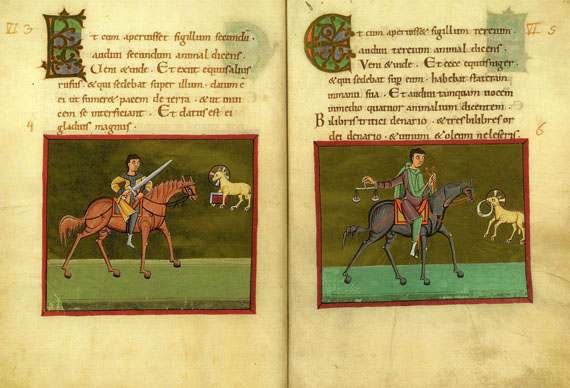 VI 3
Et cum aperuisset sigillum secundū.
audiui secundum animal dicens.
Veni & uide. Et exiit equus alius
rufus. & qui sedebat super illum. datum ē
ei ut sumer& pacem de terra. & ut inui
cem se interficiant. Et datus est ei
gladius magnus.
4
VI 5
Et cum aperuisset sigillum tertium.
audiui tertium animal dicens.
Veni & uide. Et ecce equus niger.
& qui sedebat sup eum. habebat stateram
in manu sua. Et audiui tanquam uocem
in medio quatuor animalium dicentem.
Bilibris tritici denario. & tres bilibres or
dei denario. & uinum & oleum ne leseris.
6